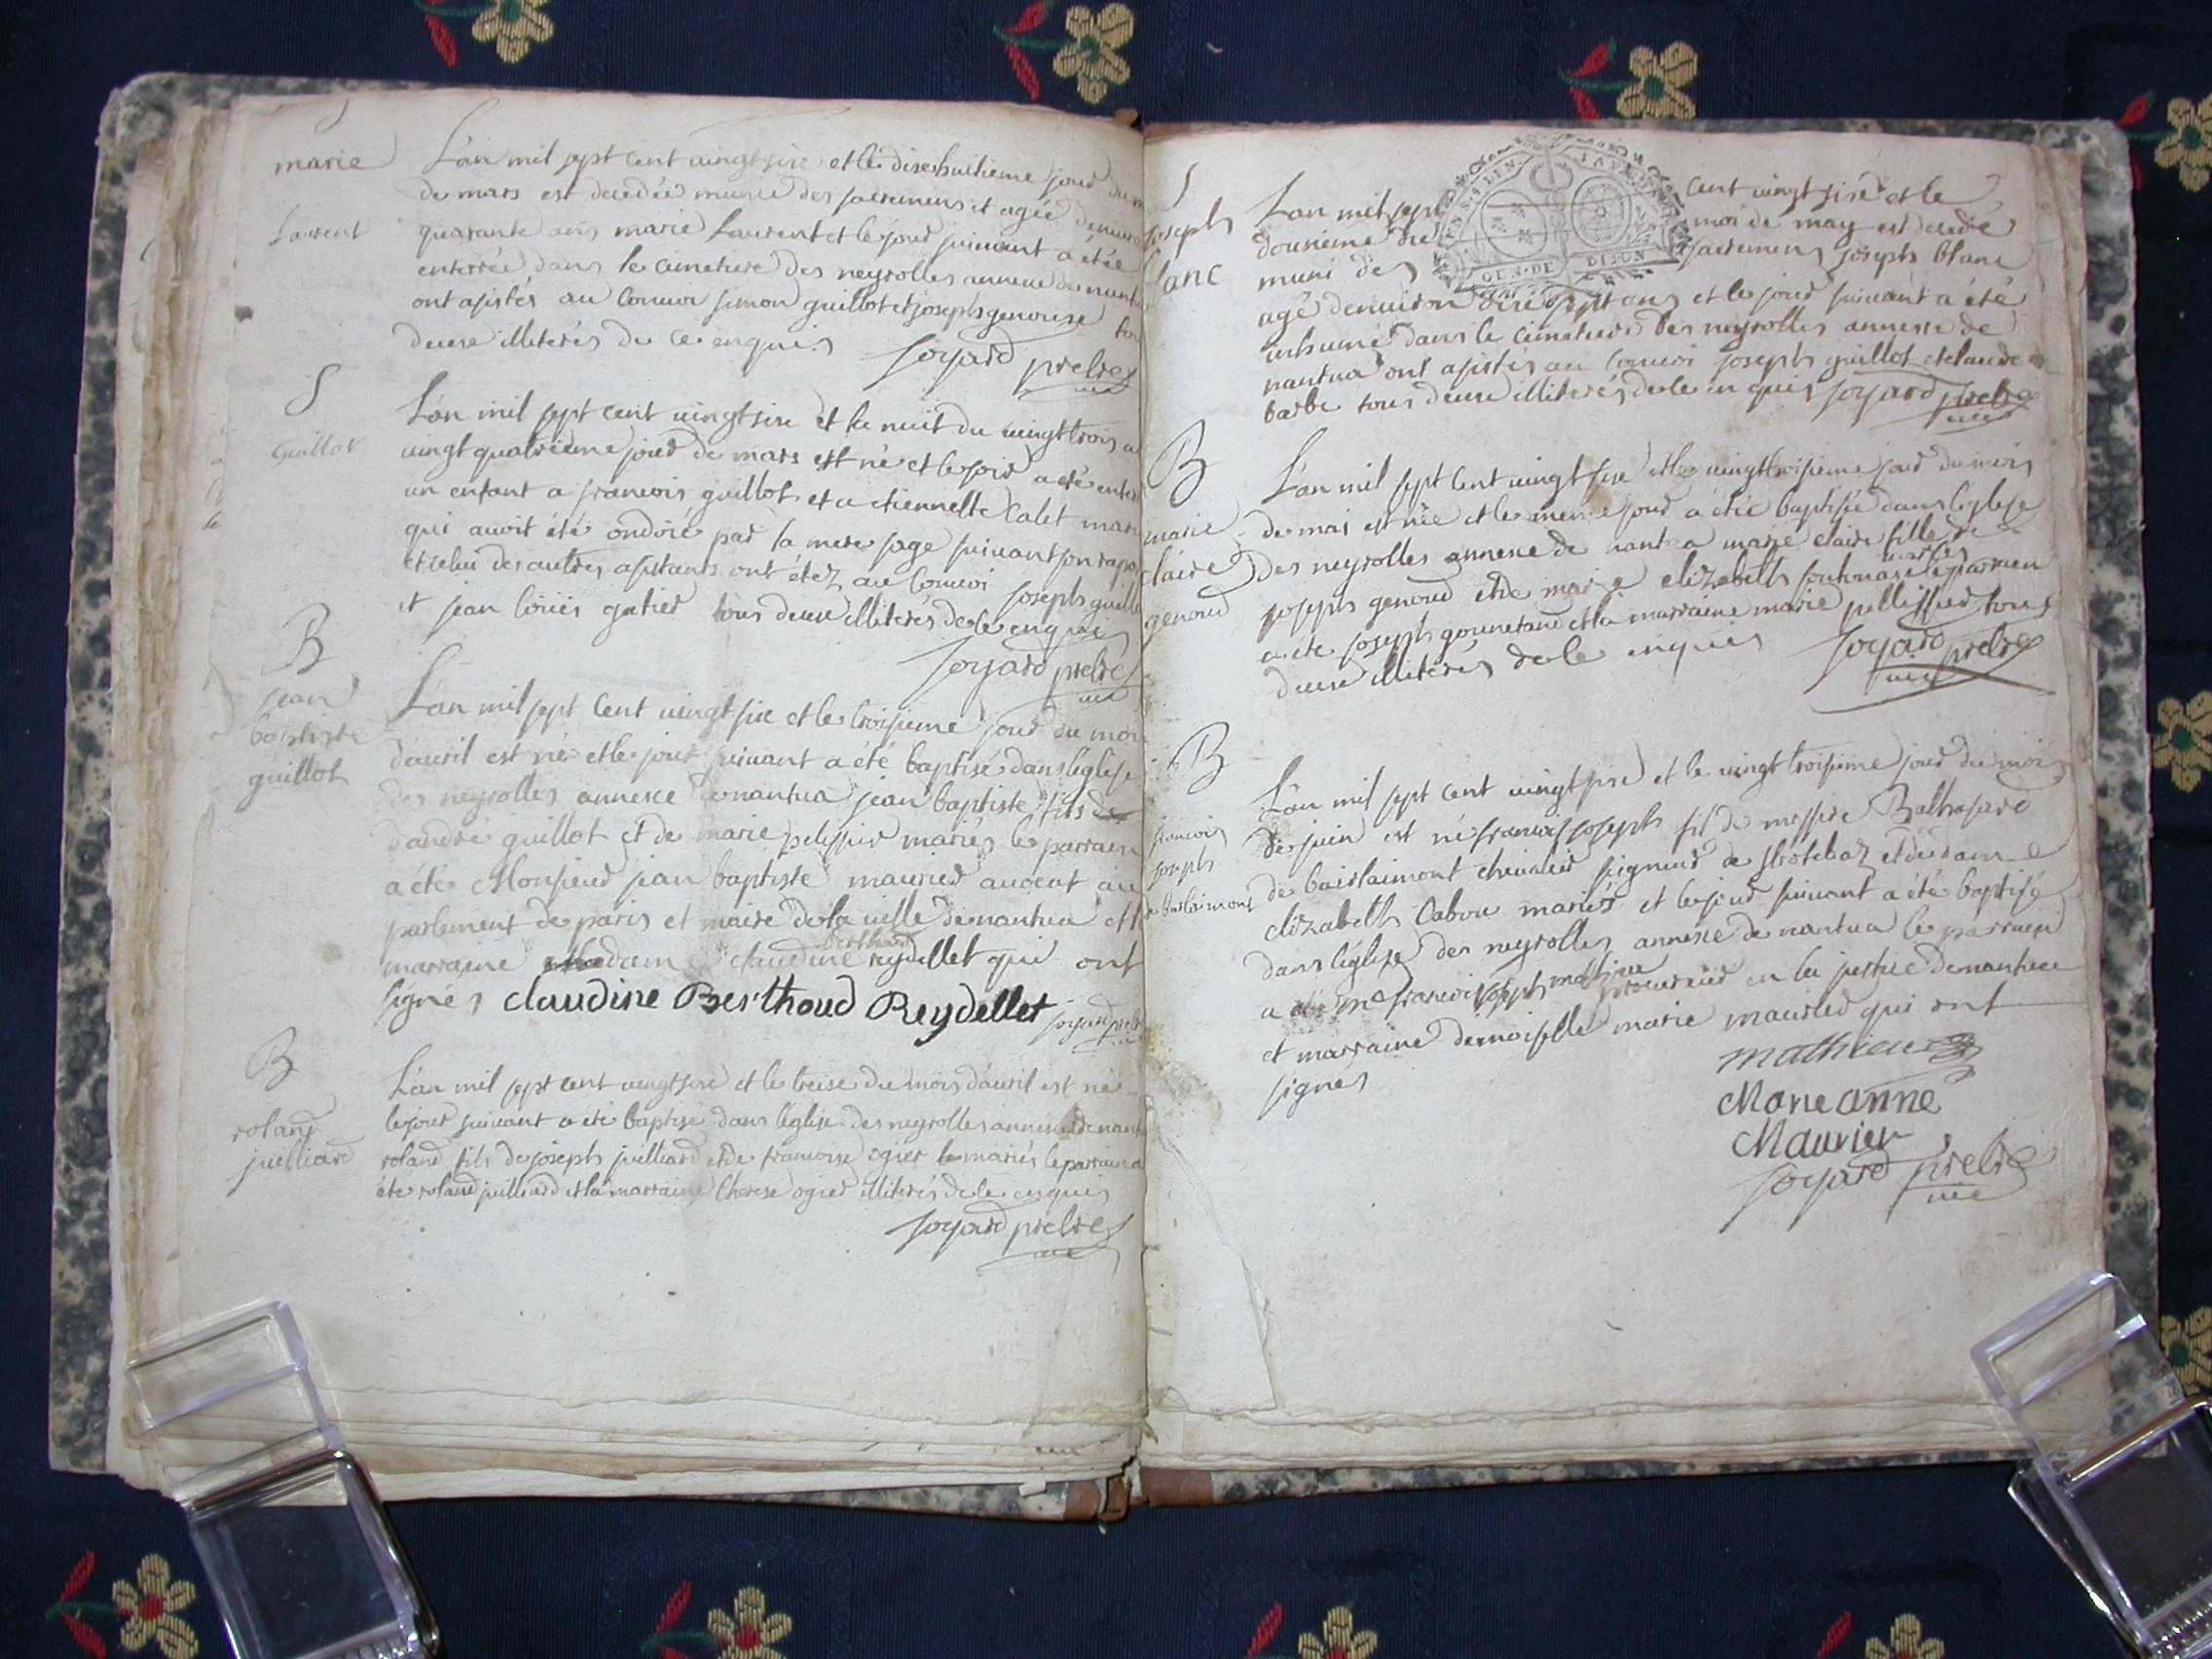 S
marie
Laurent
L'an mil sept cent vingt sixe et le dixehuitieme jour du
de mars est decedée munie des sacremens et agée denviron
quarante ans marie Laurent et le jour suivant a étée
enterrée dans le cimetiere des neyrolles annexe de nantua
ont asistés au convoi simon guillot et joseph genouse tou
deuxe illiterés de ce enquis soyard prebtre
S
Guillot
L'an mil sept cent vingt sixe et la nuit du vingt trois a
vingt quatrieme jour de mars est né et le soir a été enter
un enfant a francois guillot et a etiennette Calet marie
qui avoit été ondoié par la mere sage suivant son rapo
et celui des autres asistants ont étez au Convoi joseph guillo
et jean loüis gatier tous deuxe illiterés de ce enquis
soyard prebtre
B
jean
baptiste
guillot
L'an mil sept Cent vingt sixe et le troisieme jour du moi
d'avril est né et le jour suivant a été baptisé dans léglise
des neyrolles annexe de nantua jean baptiste fils de
d'andré guillot et de marie pelissier mariés le parrain
a été Monsieur jean baptiste maurier avocat au
parlement de paris et maire de la ville de nantua et la
marraine dam claudine berthoud reydellet qui ont
signés claudine Berthoud Reydellet soyard prebtre
B
roland
juilliard
L'an mil sept cent vingt sixe et le treise du mois d'avril est né
le jour suivant a été baptisé dans léglise des neyrolles annexe de nant
roland fils de joseph juilliard et de francoise ogier mariés le parrain a
été roland juilliard et la marraine therese ogier illiterés de ce enquis
soyard prebtre
S
joseph
lanc
L'an mil sept cent vingt sixe et le
dousieme du moi de may est decedé
muni des sacremens joseph blanc
agé denviron dixe sept ans et le jour suivant a été
inhumé dans le cimetiere des neyrolles annexe de
nantua ont asistés au convoi joseph guillot et claude
barbe tous deuxe illiterés de ce enquis soyard prebtre
B
marie
claire
genoud
L'an mil sept cent vingt sixe et le vingt troisieme jour du mois
de mai est née et le meme jour a étée baptisée dans léglise
des neyrolles annexe de nantua marie claire fille de
joseph genoud et de marie elizabeth mariés le parrain
a été joseph et la marraine marie pellissier tous
deuxe illiterés de ce enquis soyard prebtre
B
francois
joseph
de barlaimont
L'an mil sept cent vingt sixe et le vingt troisieme jour du mois
de juin est né francois joseph fil de messire Balthasard
de bairlaimont chevalier seigneur de et de dame
elizabeth Cabou mariés et le jour suivant a été baptisé
dans léglise des neyrolles annexe de nantua le parrain
a été me francois joseph mathieu procureur en la justice de nantua
et marraine demoiselle marie maurier qui ont
signés
mathieu
Marie anne
Maurier
soyard prebtre
GEN. DE DIJON